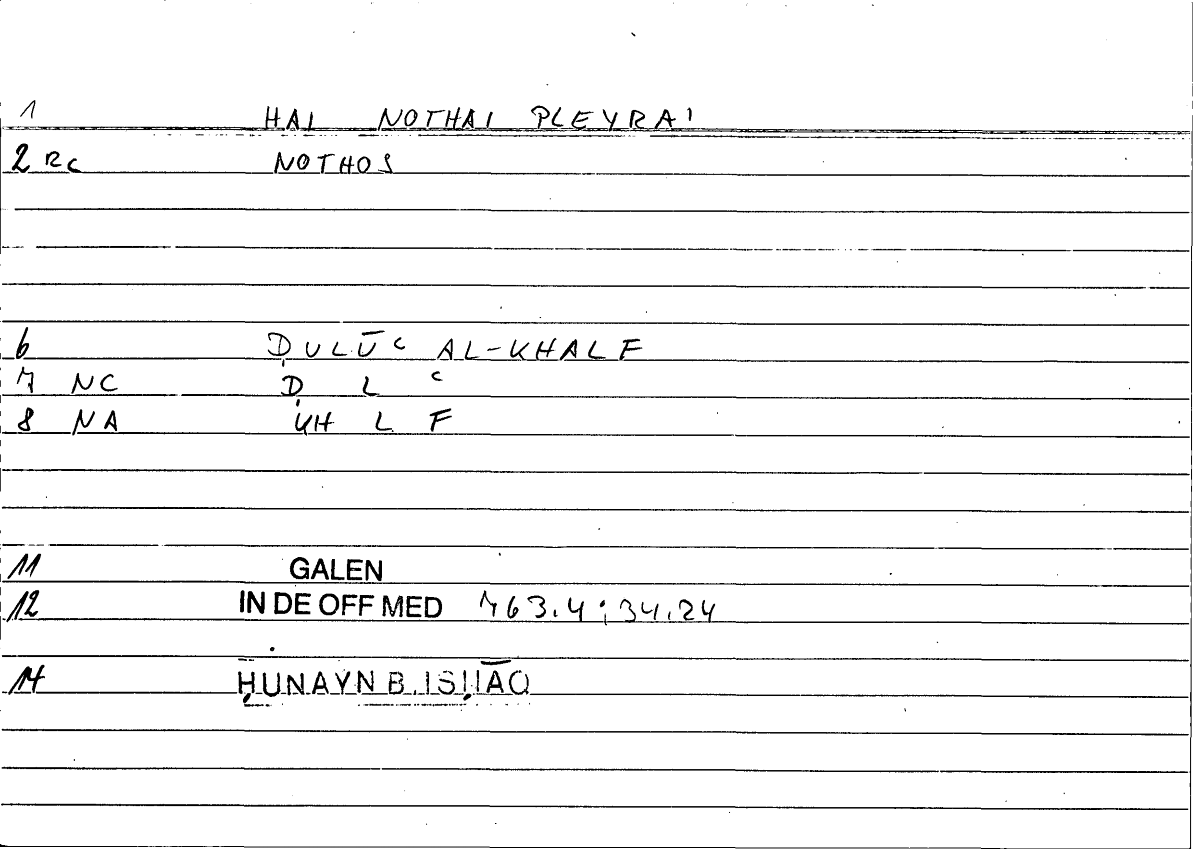 1 HAI NOTHAI PLEYRAI
2 RC NOTHOS
6 ḌULŪʿ AL-KHALF
7 NC Ḍ L ʿ
8 NA KH L F
11 GALEN
12 IN DE OFF MED 763.4;34.24
14 ḤUNAYN B. ISḤĀQ